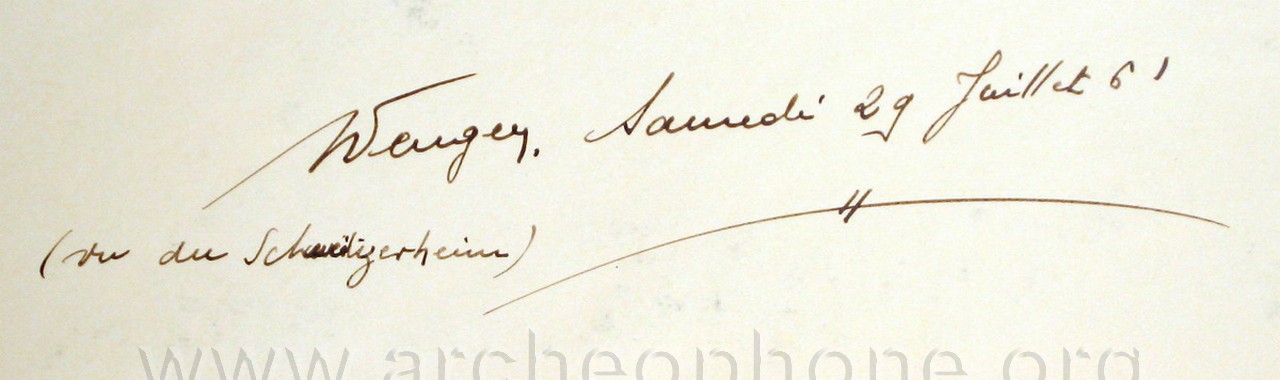 Wengen, Samedi 29 Juillet 61
(vu du Schweizerheim)
www.archeophone.org